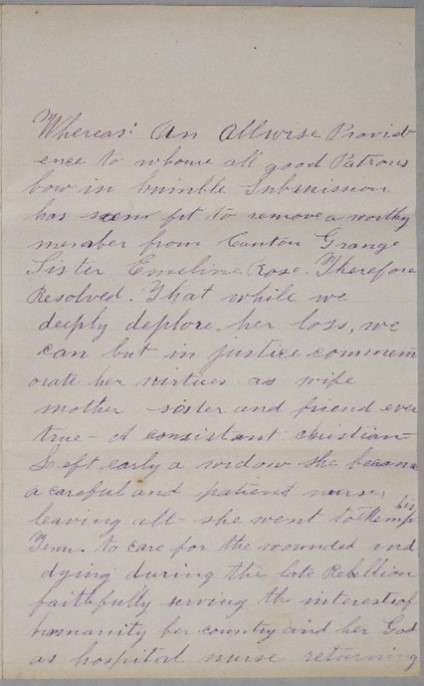 Whereas: An Allwise Provid
ence to whome all good Patrons
bow in humble Submission
has seem fit to remove a worthy
member from Canton Grange
Sister Emeline Rose. Therefore
Resolved. That while we
deeply deplore her loss, we
can but in justice commem
orate her virtues as wife
mother sister and friend ever
true - A consistant christian -
Left early a widow she became
a careful and patient nurse,
leaving all she went to Memphis
Tenn. to care for the wounded and
dying during the late Rebellion
faithfully serving the interest of
humanity her country and her God
as hospital nurse returning